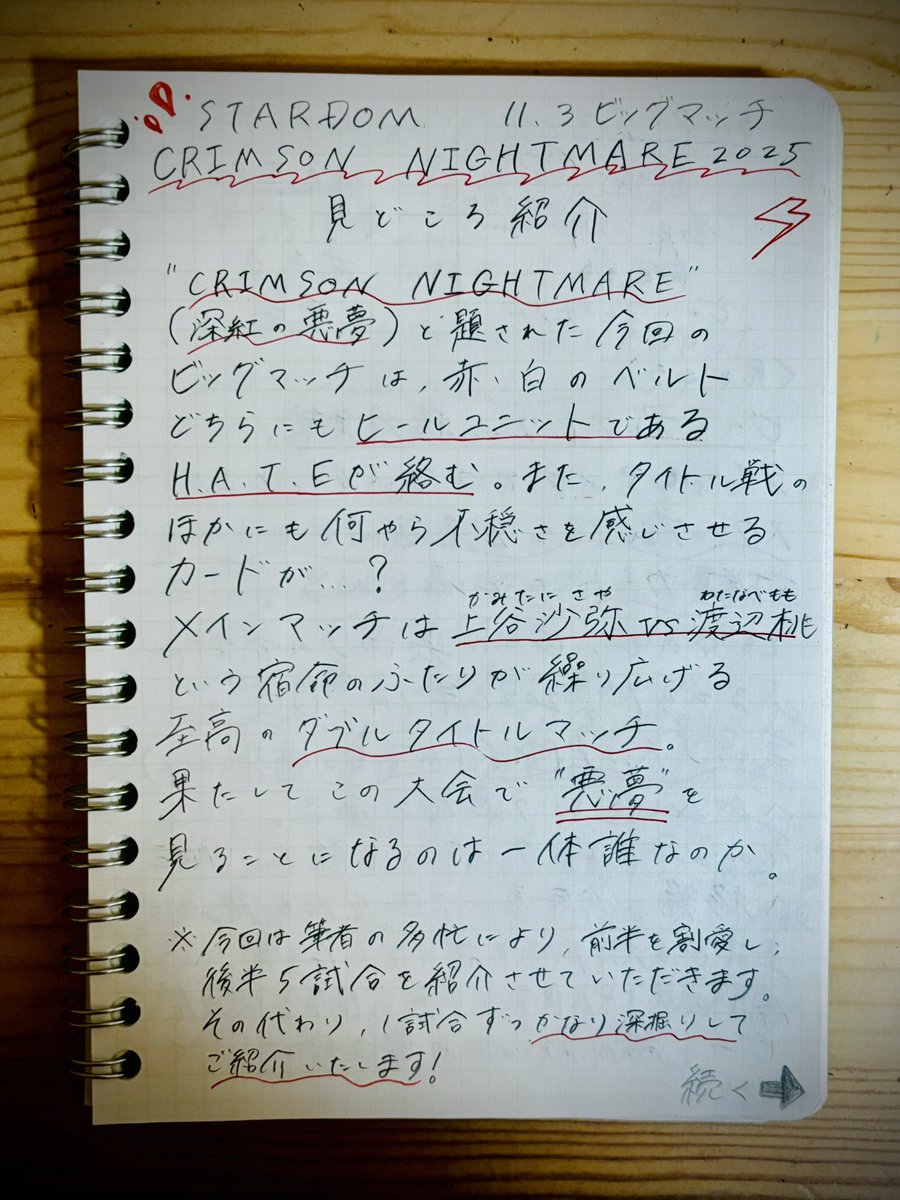 STARDOM 11.3 ビッグマッチ
CRIMSON NIGHTMARE 2025
見どころ紹介
"CRIMSON NIGHTMARE"
(深紅の悪夢)と題された今回の
ビッグマッチは、赤・白のベルト
どちらにもヒールユニットである
H.A.T.Eが絡む。また、タイトル戦の
ほかにも何やら不穏さを感じさせる
カードが…?
かみたに さや わたなべ もも
メインマッチは上谷沙弥vs渡辺桃
という宿命のふたりが繰り広げる
至高のダブルタイトルマッチ。
果たしてこの大会で"悪夢"を
見ることになるのは一体誰なのか。
※今回は筆者の多忙により、前半を割愛し、
後半5試合を紹介させていただきます。
その代わり、1試合ずつかなり深掘りして
ご紹介いたします!
続く